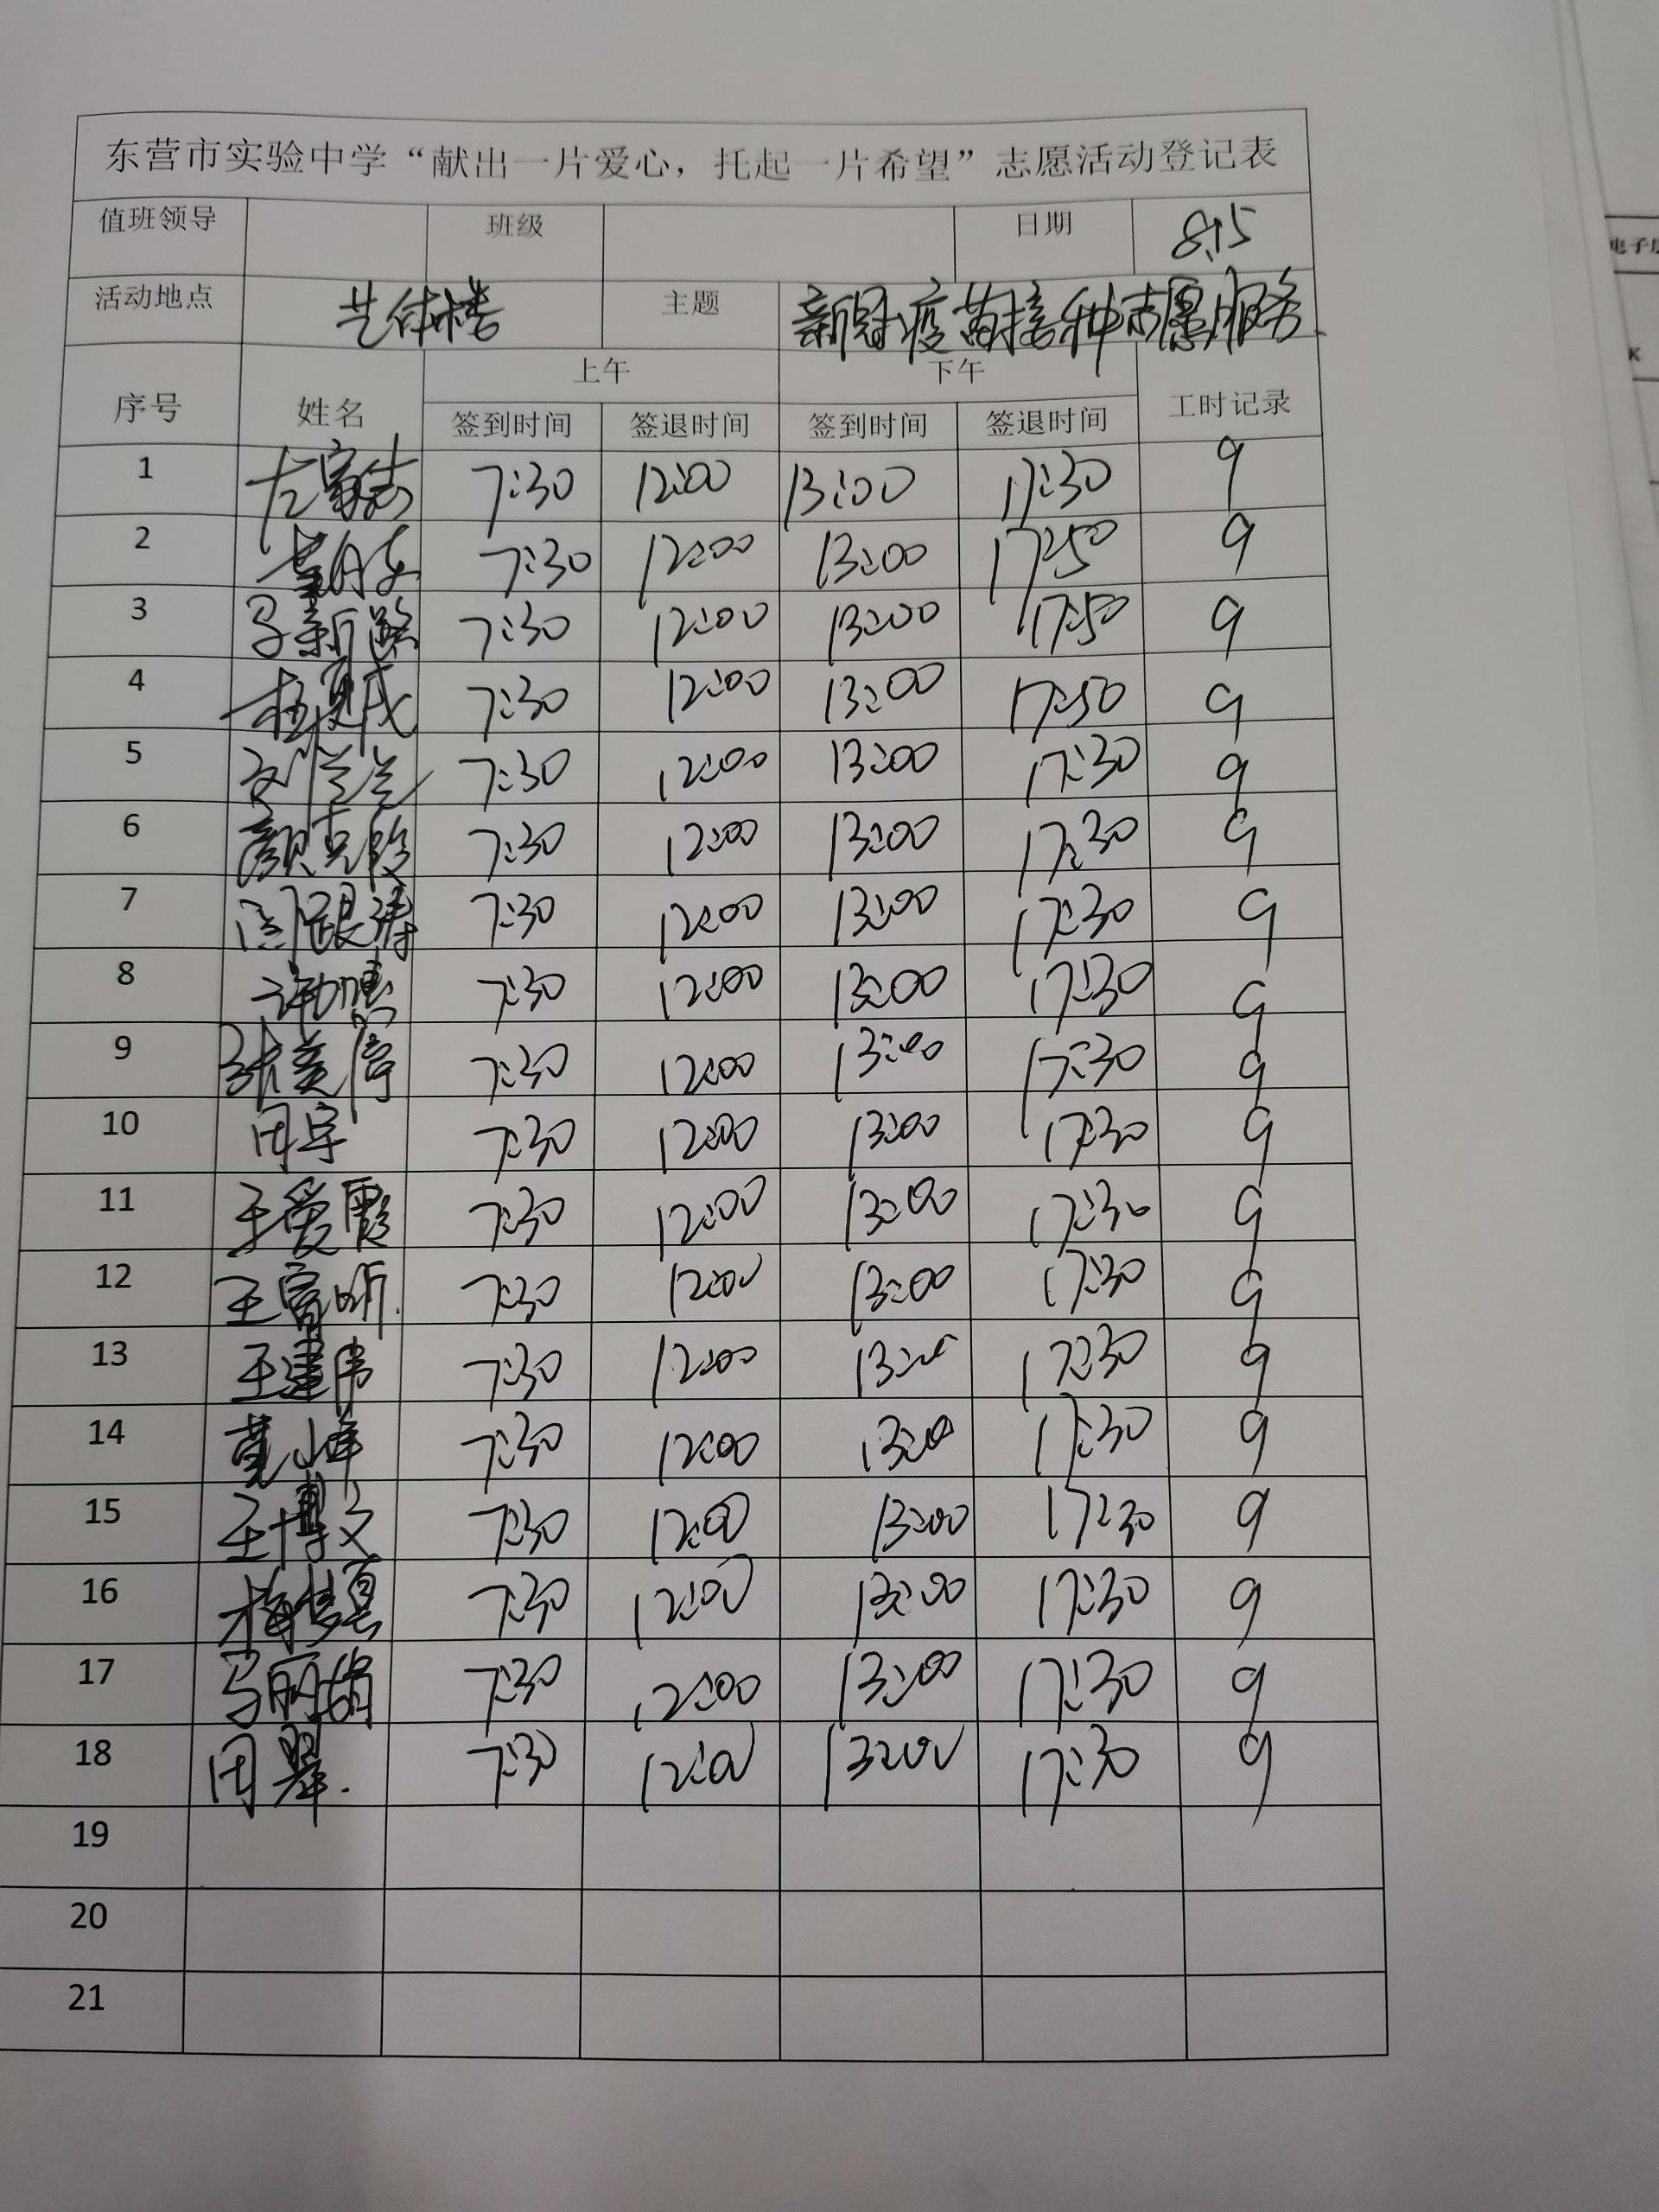 东营市实验中学“献出一片爱心，托起一片希望”志愿活动登记表
值班领导 班级 日期 8.15
活动地点 艺体楼 主题 新冠疫苗接种志愿服务
序号 姓名 上午 下午 工时记录
签到时间 签退时间 签到时间 签退时间
1 7:30 12:00 13:00 17:30 9
2 7:30 12:00 13:00 17:50 9
3 7:30 12:00 13:00 17:50 9
4 7:30 12:00 13:00 17:50 9
5 刘兰兰 7:30 12:00 13:00 17:30 9
6 颜克段 7:30 12:00 13:00 17:30 9
7 7:30 12:00 13:00 17:30 9
8 7:30 12:00 13:00 17:30 9
9 张美停 7:30 12:00 13:00 17:30 9
10 田宇 7:30 12:00 13:00 17:30 9
11 王爱霞 7:30 12:00 13:00 17:30 9
12 王富明 7:30 12:00 13:00 17:30 9
13 王建伟 7:30 12:00 13:00 17:30 9
14 黄小峰 7:30 12:00 13:00 17:30 9
15 王博文 7:30 12:00 13:00 17:30 9
16 7:30 12:00 13:00 17:30 9
17 马丽娟 7:30 12:00 13:00 17:30 9
18 田翠. 7:30 12:00 13:00 17:30 9
19
20
21
电子
K